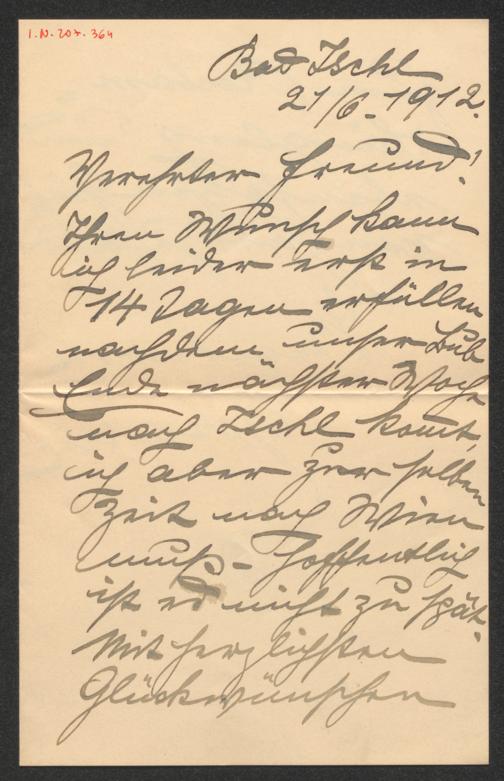 I.N. 207.364
Bad Ischl
21/6. 1912.
Verehrter Freund!
Ihren Wunsch kann
ich leider erst in
14 Tagen erfüllen
nachdem unser Bub
Ende nächster Woche
nach Ischl komt,
ich aber zur selben
Zeit nach Wien
muß – Hoffentlich
ist es nicht zu spät.
Mit herzlichsten
Glückwünschen